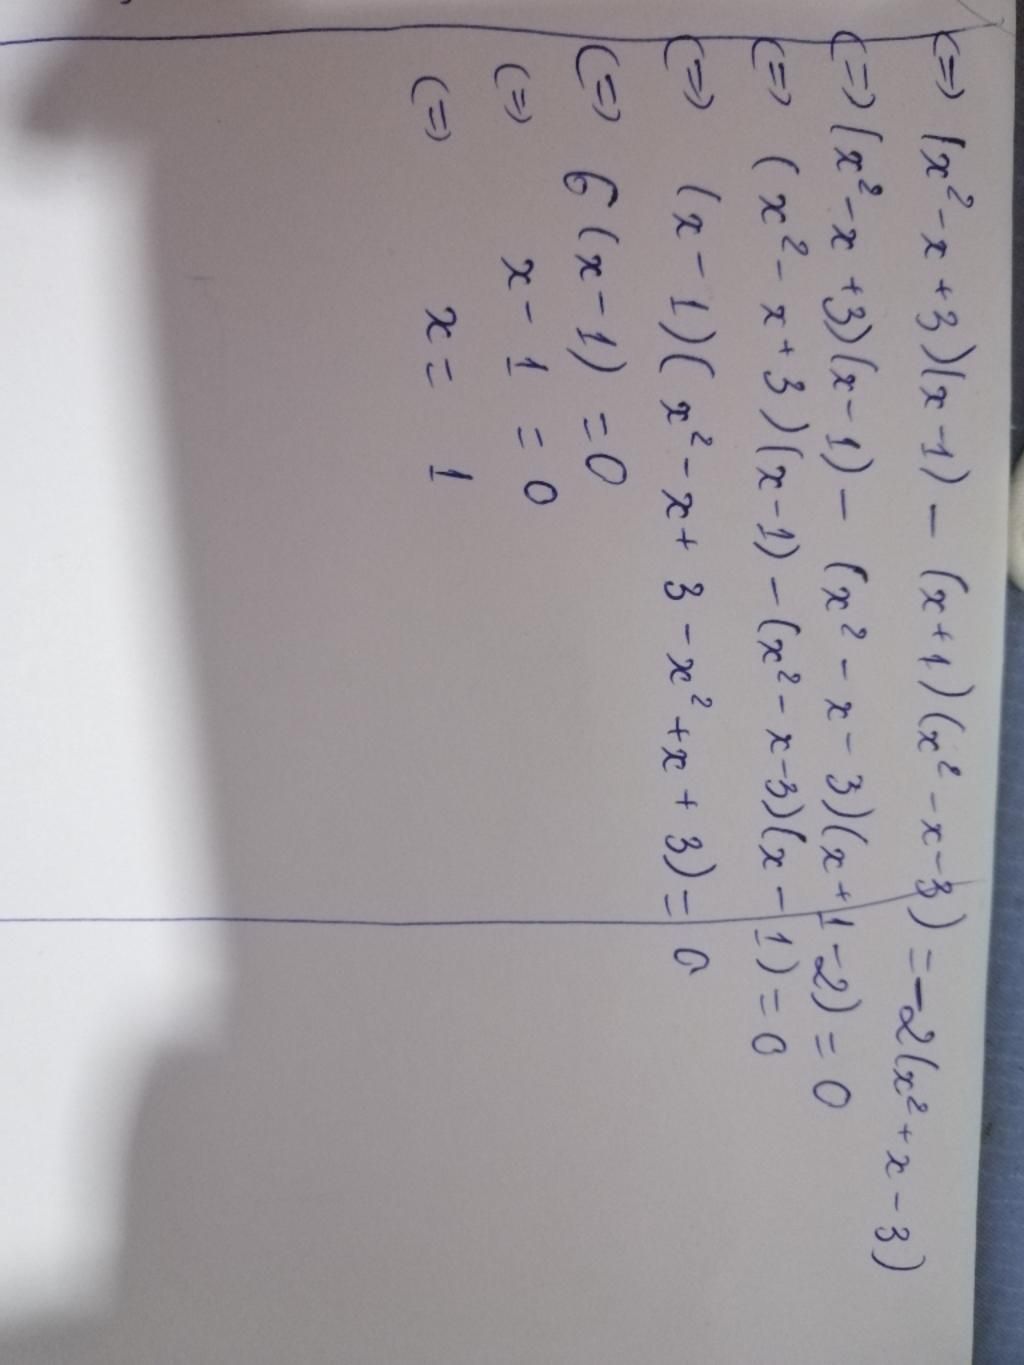 (=) (x² - x + 3)(x - 1) - (x + 1)(x² - x - 3) = -2(x² + x - 3)
(=) (x² - x + 3)(x - 1) - (x² - x - 3)(x + 1 - 2) = 0
(=) (x² - x + 3)(x - 1) - (x² - x - 3)(x - 1) = 0
(=) (x - 1)(x² - x + 3 - x² + x + 3) = 0
(=) 6(x - 1) = 0
(=) x - 1 = 0
(=) x = 1